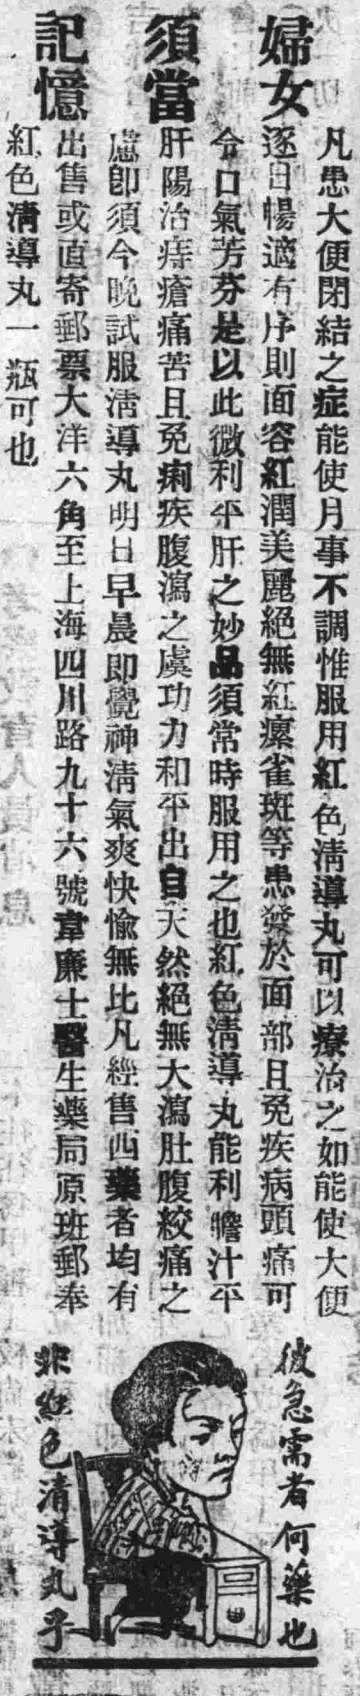 婦女
須當
記憶
凡患大便閉結之症能使月事不調惟服用紅色清導丸可以療治之如能使大便
逐日暢適有序則面容紅潤美麗絕無紅瘰雀斑等患發於面部且免疾病頭痛可
令口氣芳芬是以此微利平肝之妙品須常時服用之也紅色清導丸能利膽汁平
肝陽治痔瘡痛苦且免痢疾腹瀉之虞功力和平出自天然絕無大瀉肚腹絞痛之
慮卽須今晚試服清導丸明日早晨即覺神清氣爽快愉無比凡經售西藥者均有
出售或直寄郵票大洋六角至上海四川路九十六號韋廉士醫生藥局原班郵奉
紅色清導丸一瓶可也
彼急需者何藥也
非紅色清導丸乎